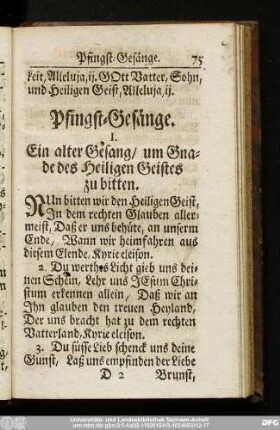 Pfingst-Gesänge. 75
keit, Alleluja, ij. GOtt Vatter, Sohn,
und Heiligen Geist, Alleluja, ij.
Pfingst-Gesänge.
I.
Ein alter Gesang/ um Gna-
de des Heiligen Geistes
zu bitten.
NUn bitten wir den Heiligen Geist,
Jn dem rechten Glauben aller-
meist, Daß er uns behüte, an unserm
Ende, Wann wir heimfahren aus
diesem Elende, Kyrie eleison.
2. Du werthes Licht gieb uns dei-
nen Schein, Lehr uns JEsum Chri-
stum erkennen allein, Daß wir an
Jhn glauben den treuen Heyland,
Der uns bracht hat zu dem rechten
Vatterland, Kyrie eleison.
3. Du süsse Lieb schenck uns deine
Gunst, Laß uns empfinden der Liebe
D 2 Brunst,
Universitäts- und Landesbibliothek Sachsen-Anhalt